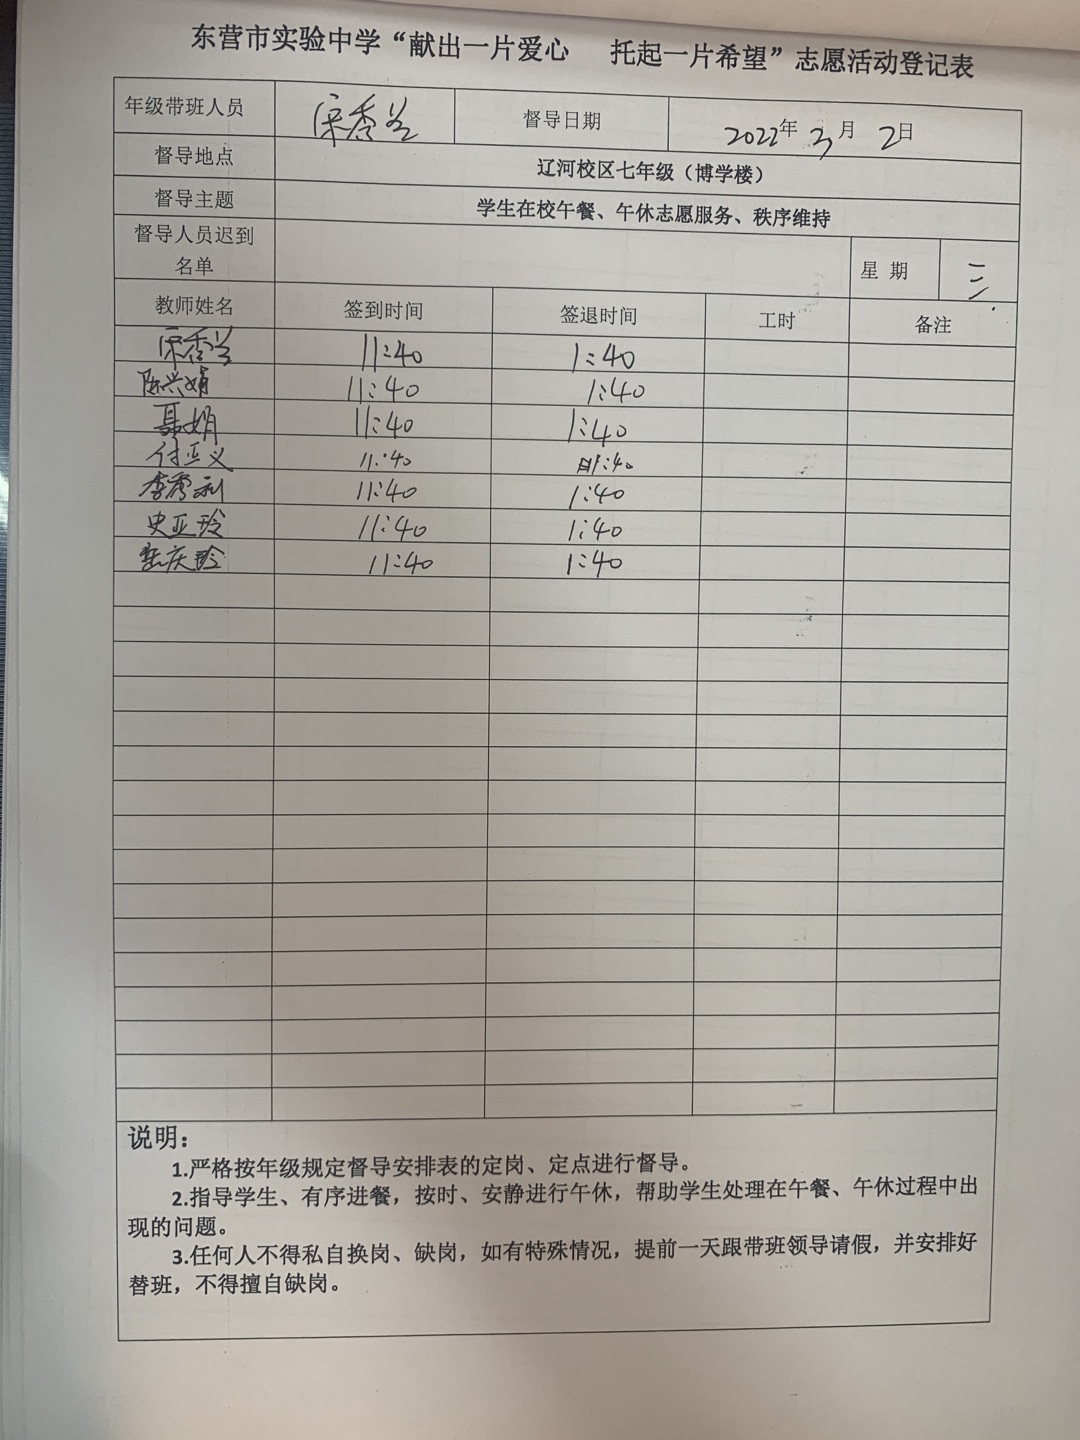 东营市实验中学“献出一片爱心 托起一片希望”志愿活动登记表
年级带班人员 宋秀兰 督导日期 2022年 3月 2日
督导地点 辽河校区七年级（博学楼）
督导主题 学生在校午餐、午休志愿服务、秩序维持
督导人员迟到
名单 星 期 三
教师姓名 签到时间 签退时间 工时 备注
宋秀兰 11:40 1:40
陈兴娟 11:40 1:40
聂娟 11:40 1:40
付亚义 11:40 1:40
李秀利 11:40 1:40
史亚玲 11:40 1:40
庆玲 11:40 1:40
说明：
1.严格按年级规定督导安排表的定岗、定点进行督导。
2.指导学生、有序进餐，按时、安静进行午休，帮助学生处理在午餐、午休过程中出
现的问题。
3.任何人不得私自换岗、缺岗，如有特殊情况，提前一天跟带班领导请假，并安排好
替班，不得擅自缺岗。